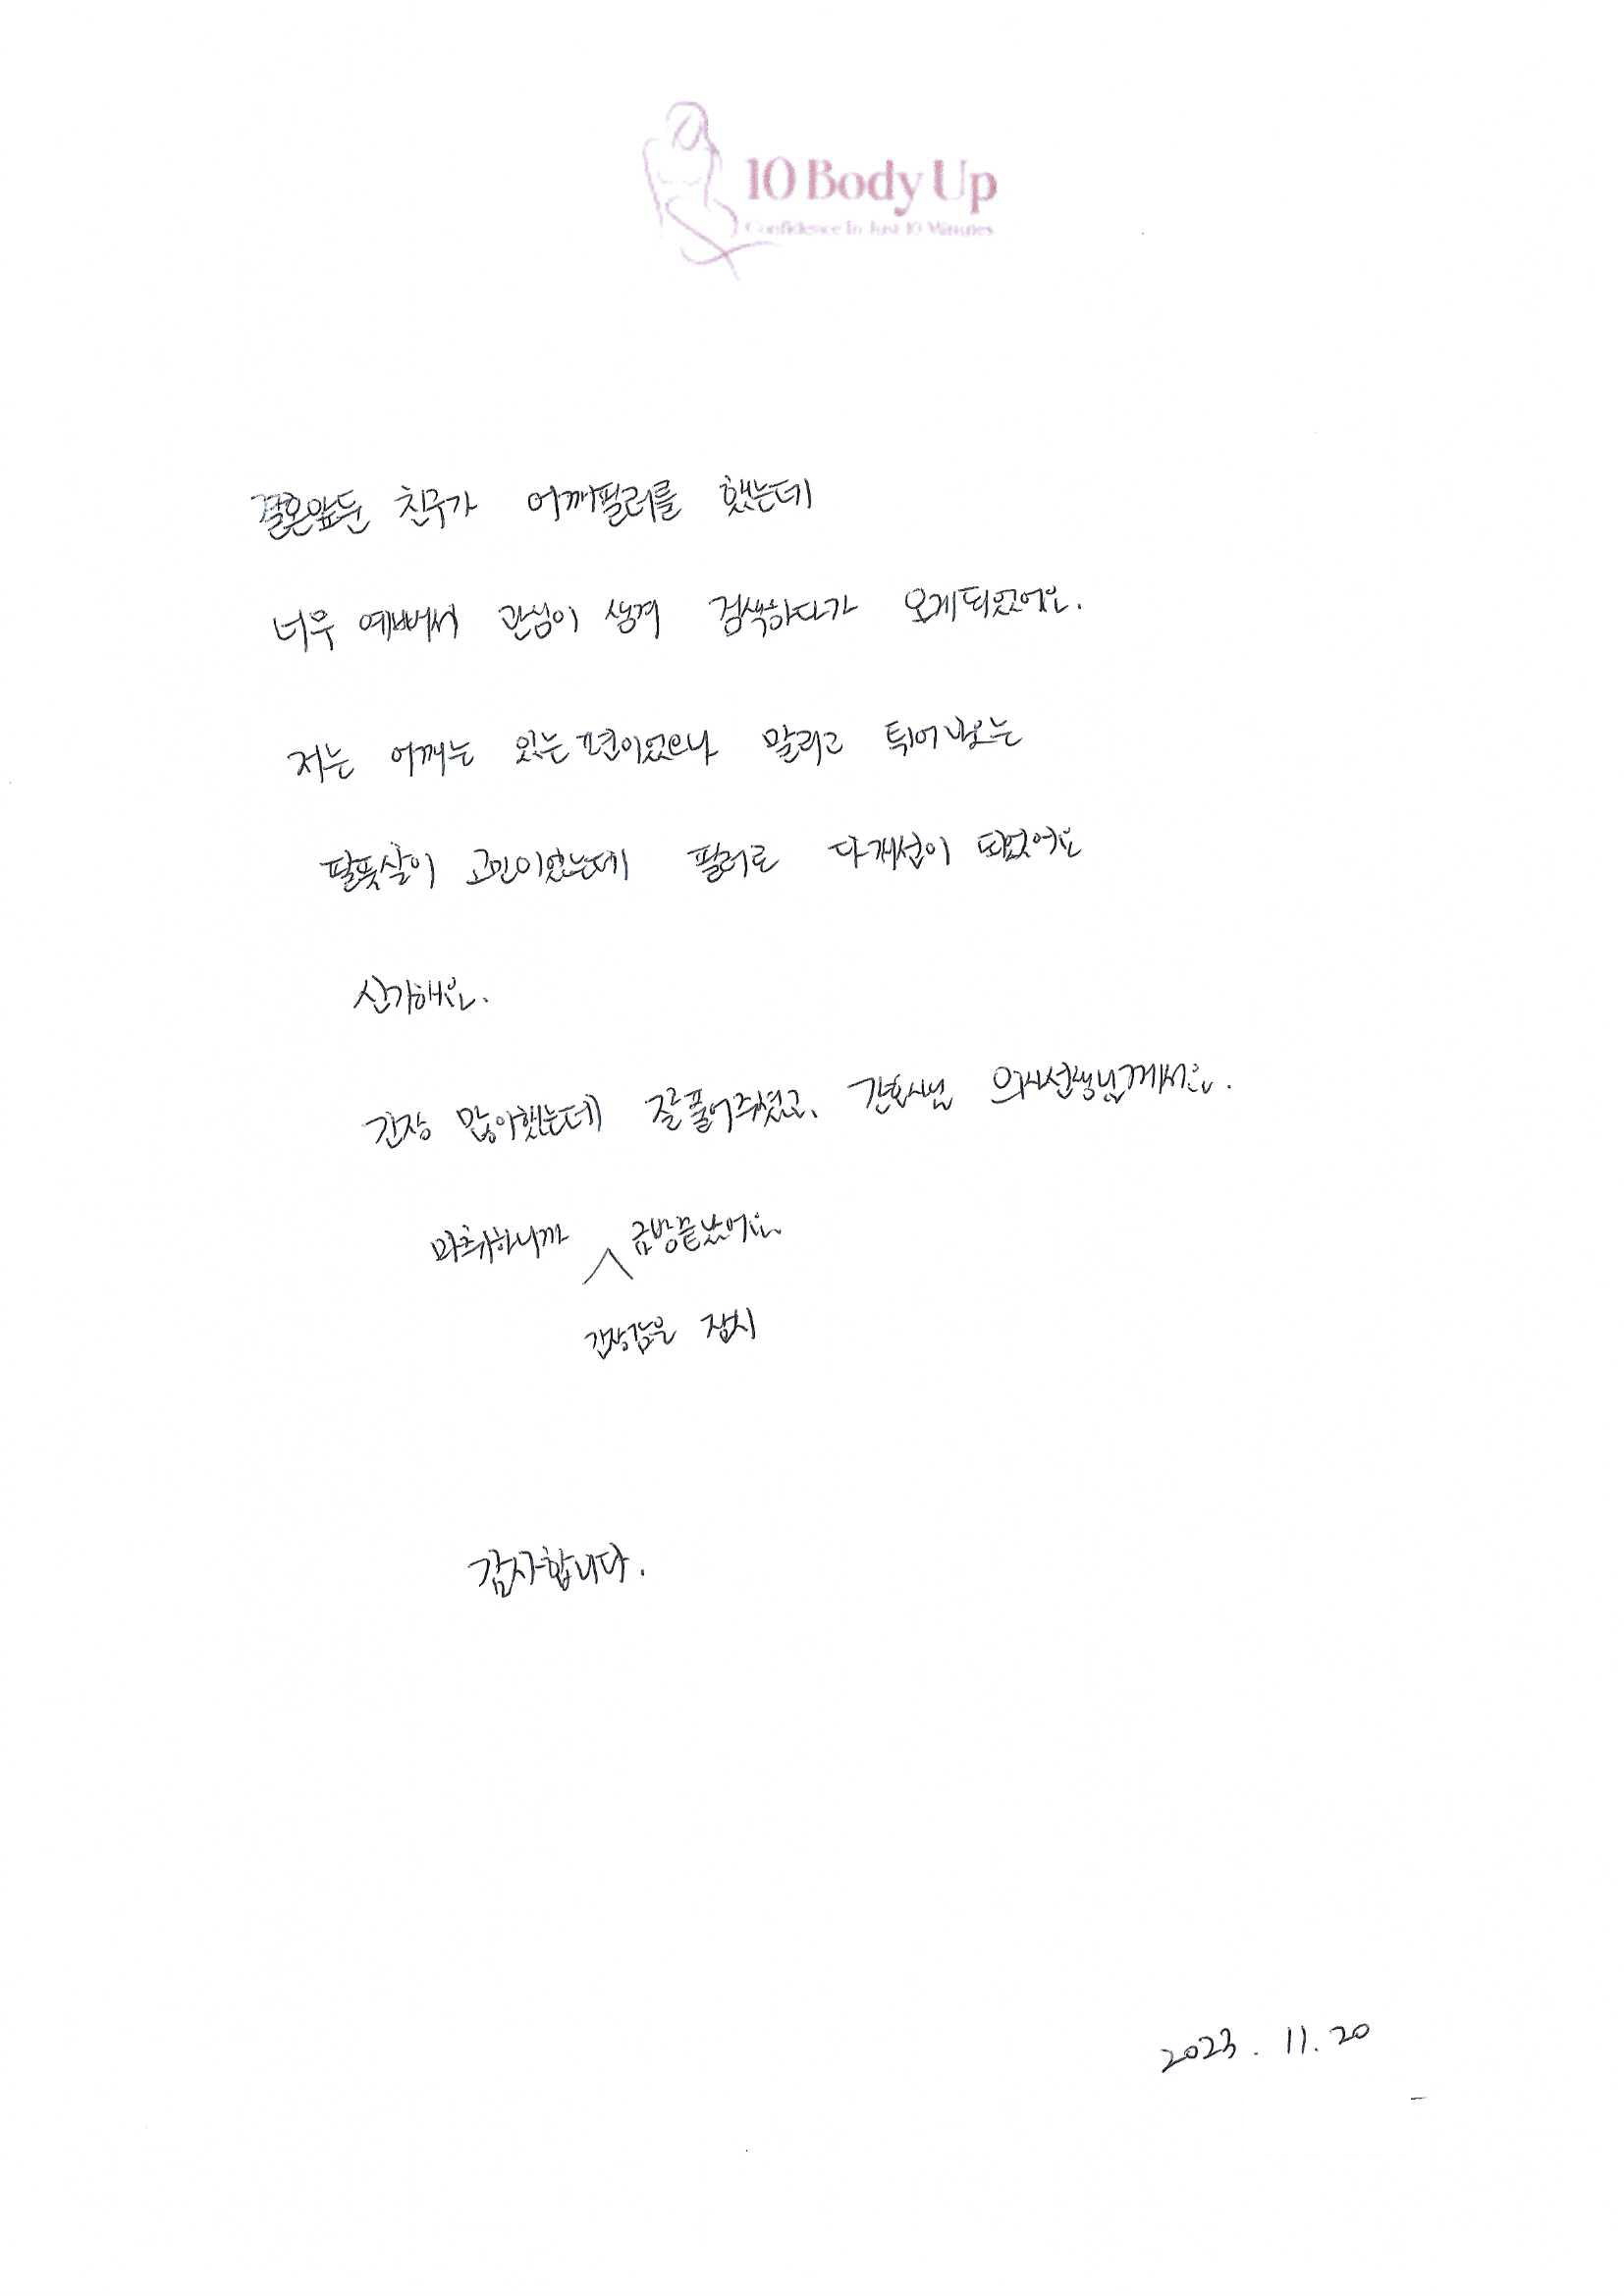 10 Body Up
Confidence In Just 10 Minutes
결혼앞둔 친구가 어깨필러를 했는데
너무 예뻐서 관심이 생겨 검색하다가 오게되었어요.
저는 어깨는 있는편이었으나 말리고 튀어나오는
팔뚝살이 고민이었는데 필러로 다개선이 되었어요
신기해요.
긴장 많이했는데 잘풀어주셨고, 간호사님 의사선생님께서요.
마취하니까 금방끝났어요.
긴장감은 잠시
감사합니다.
2023. 11. 20